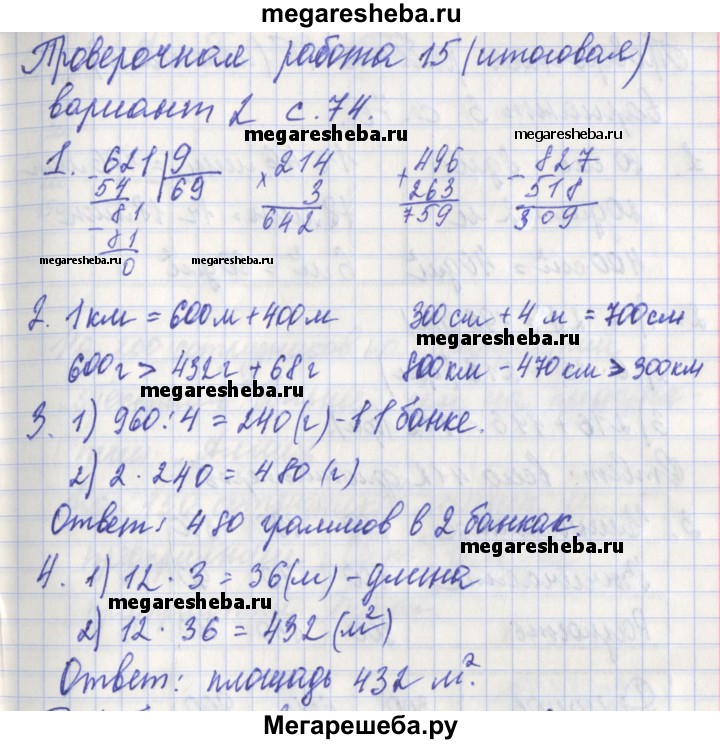 megaresheba.ru
Проверочная работа 15 (итоговая)
вариант 2 с. 74.
megaresheba.ru
megaresheba.ru
1. - 621 | 9    × 214    + 496    - 827
54 | 69    3    263    518
- 81    642    759    309
81
0
megaresheba.ru megaresheba.ru megaresheba.ru
2. 1 км = 600 м + 400 м    300 см + 4 м = 700 см
600 г > 432 г + 68 г    800 км - 470 км > 300 км
megaresheba.ru
3. 1) 960 : 4 = 240 (г) - в 1 банке.
2) 2 · 240 = 480 (г)
megaresheba.ru
Ответ: 480 граммов в 2 банках
megaresheba.ru
4. 1) 12 · 3 = 36 (м) - длина
megaresheba.ru
2) 12 · 36 = 432 (м²)
megaresheba.ru
Ответ: площадь 432 м².
Мегарешеба.ру